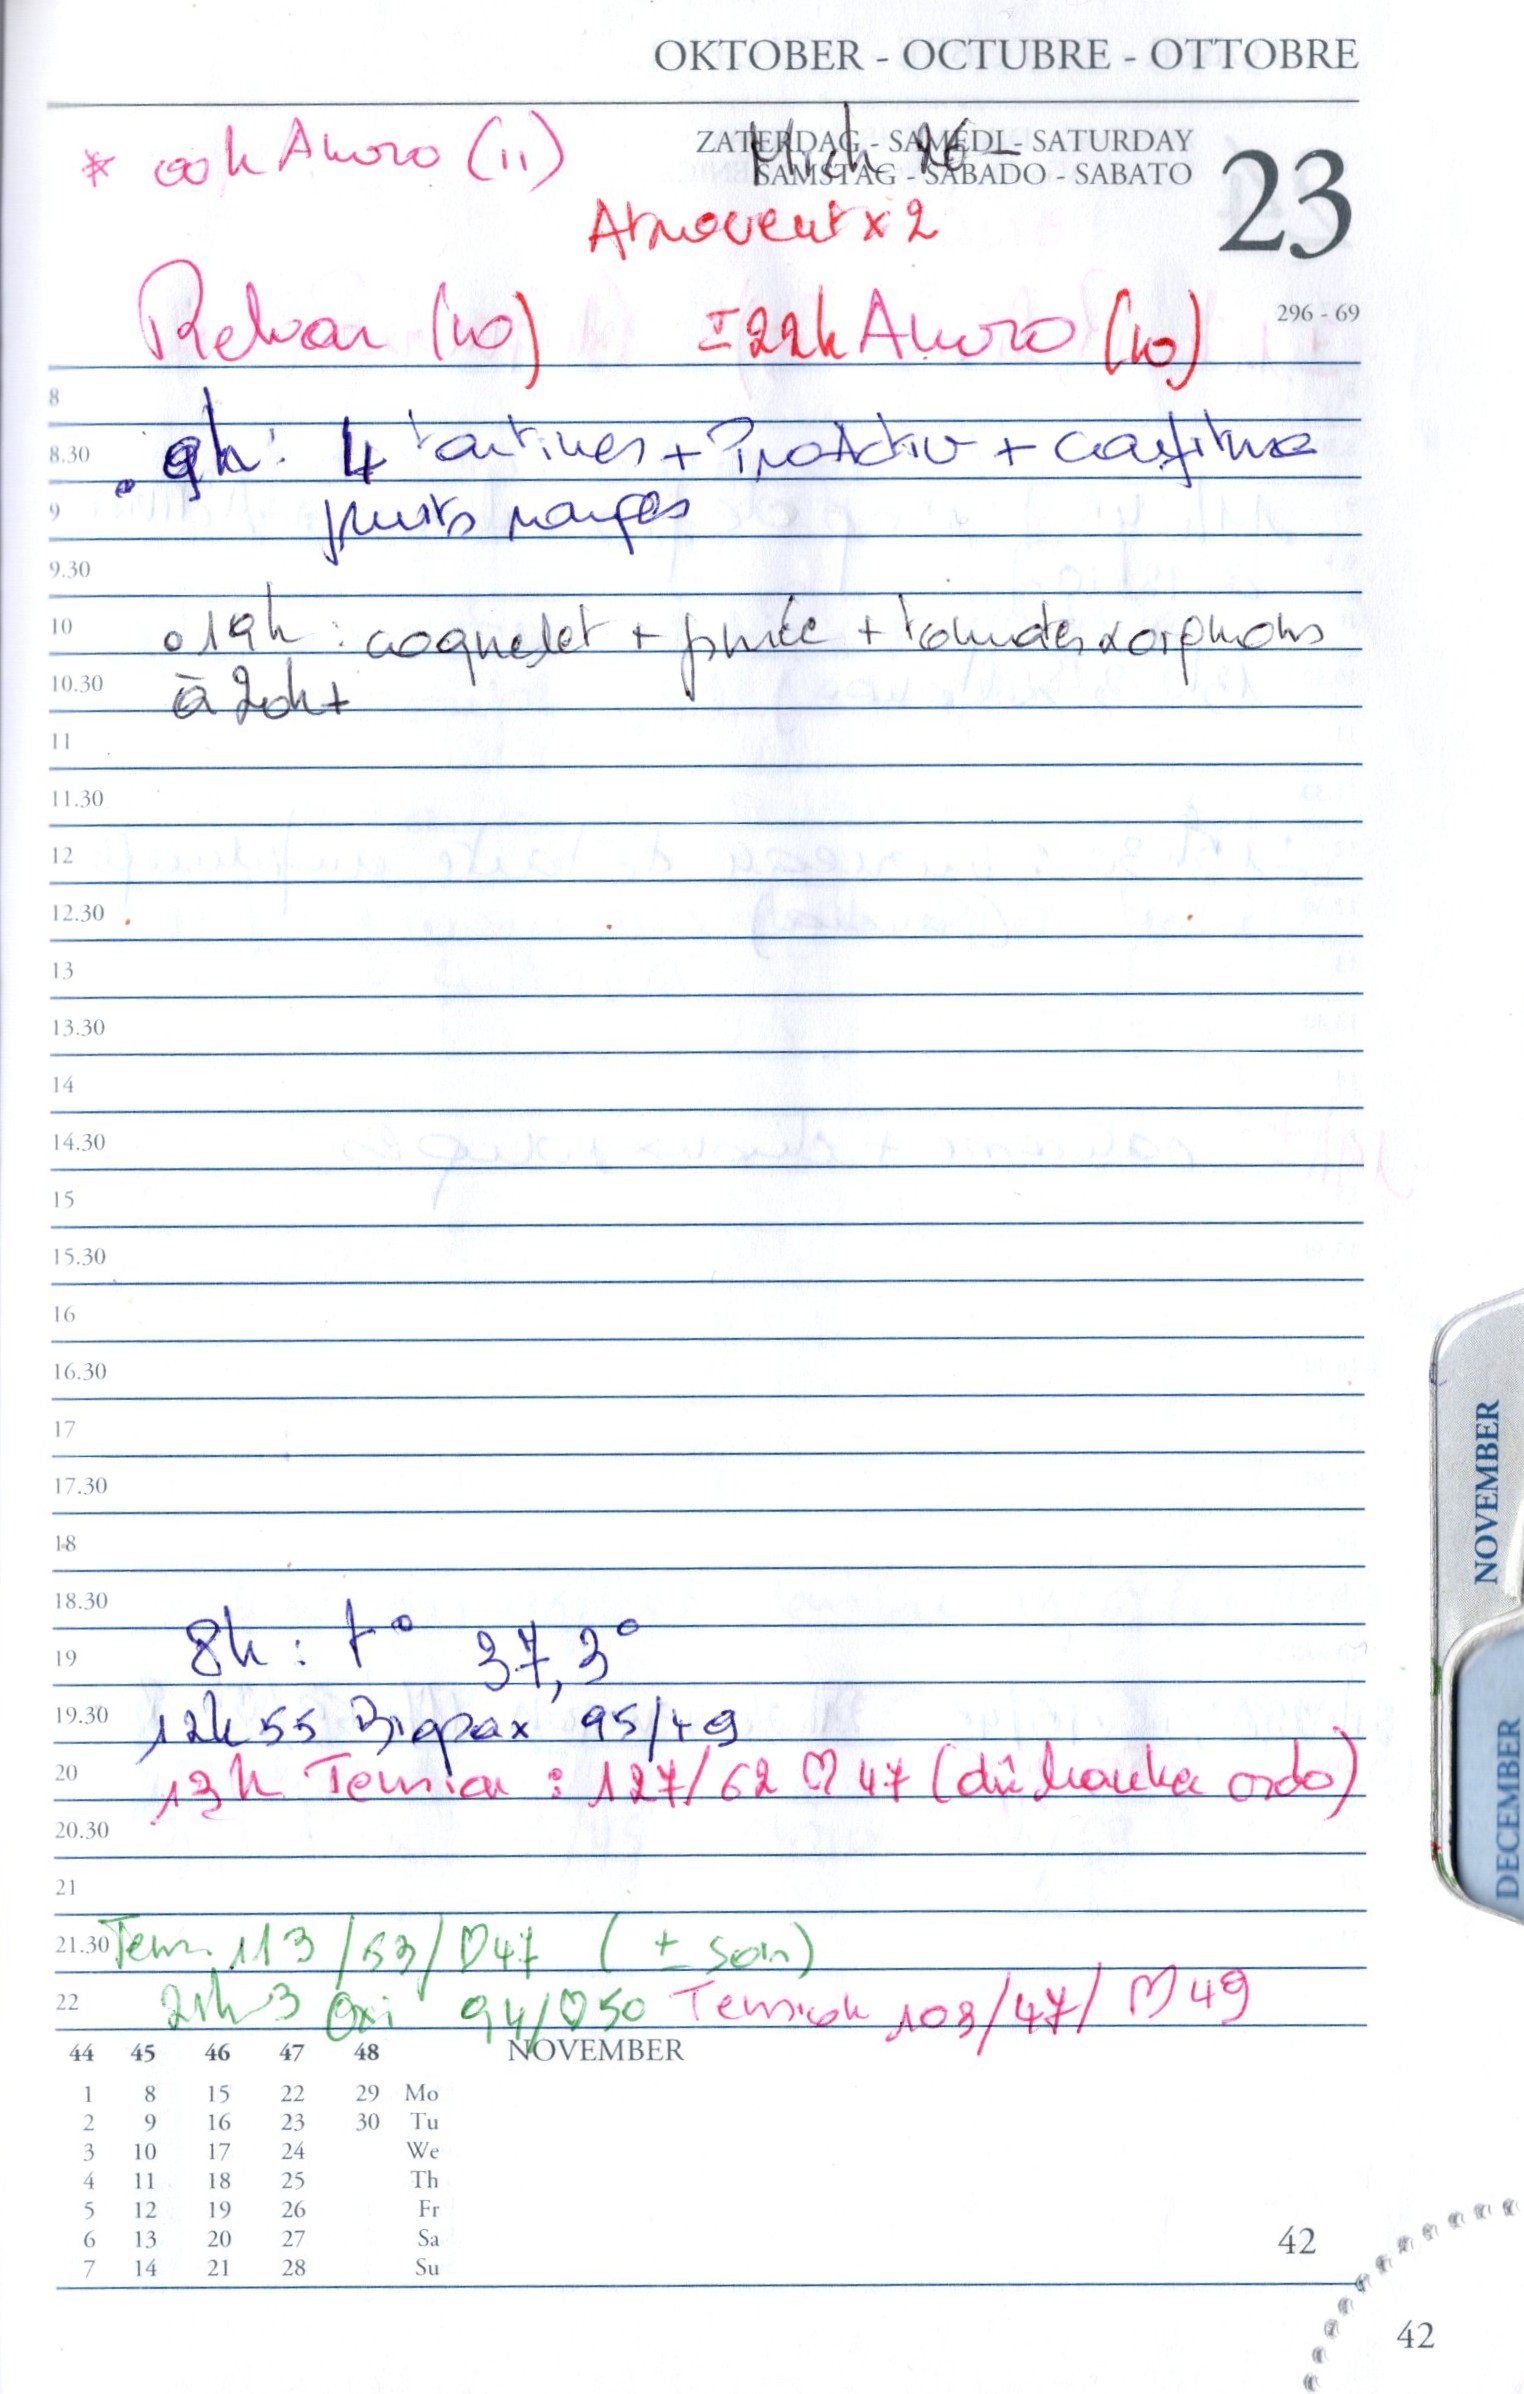 OKTOBER - OCTUBRE - OTTOBRE
* 00h Anoro (11)
ZATERDAG - SAMEDI - SATURDAY
SAMSTAG - SÁBADO - SABATO
23
Atrovent x 2
Relvar (10) I 22h Anoro (10)
296 - 69
8
8.30 . 9h : 4 tartines + ProActiv + confiture
9 fruits rouges
9.30
10 o 19h : coquelet + purée + tomates
10.30 à 20h +
11
11.30
12
12.30
13
13.30
14
14.30
15
15.30
16
16.30
17
17.30
18
18.30
19 8h : t° 37,3°
19.30 12h55 95/49
20 13h Tension : 127/62 ♡ 47 (dû
20.30
21
21.30 Tens. 113/53/♡47 (± soir)
22 21h3 Oxi 94/♡50 Tension 103/47/♡49
44 45 46 47 48 NOVEMBER
1 8 15 22 29 Mo
2 9 16 23 30 Tu
3 10 17 24 We
4 11 18 25 Th
5 12 19 26 Fr
6 13 20 27 Sa
7 14 21 28 Su
42
42
NOVEMBER
DECEMBER